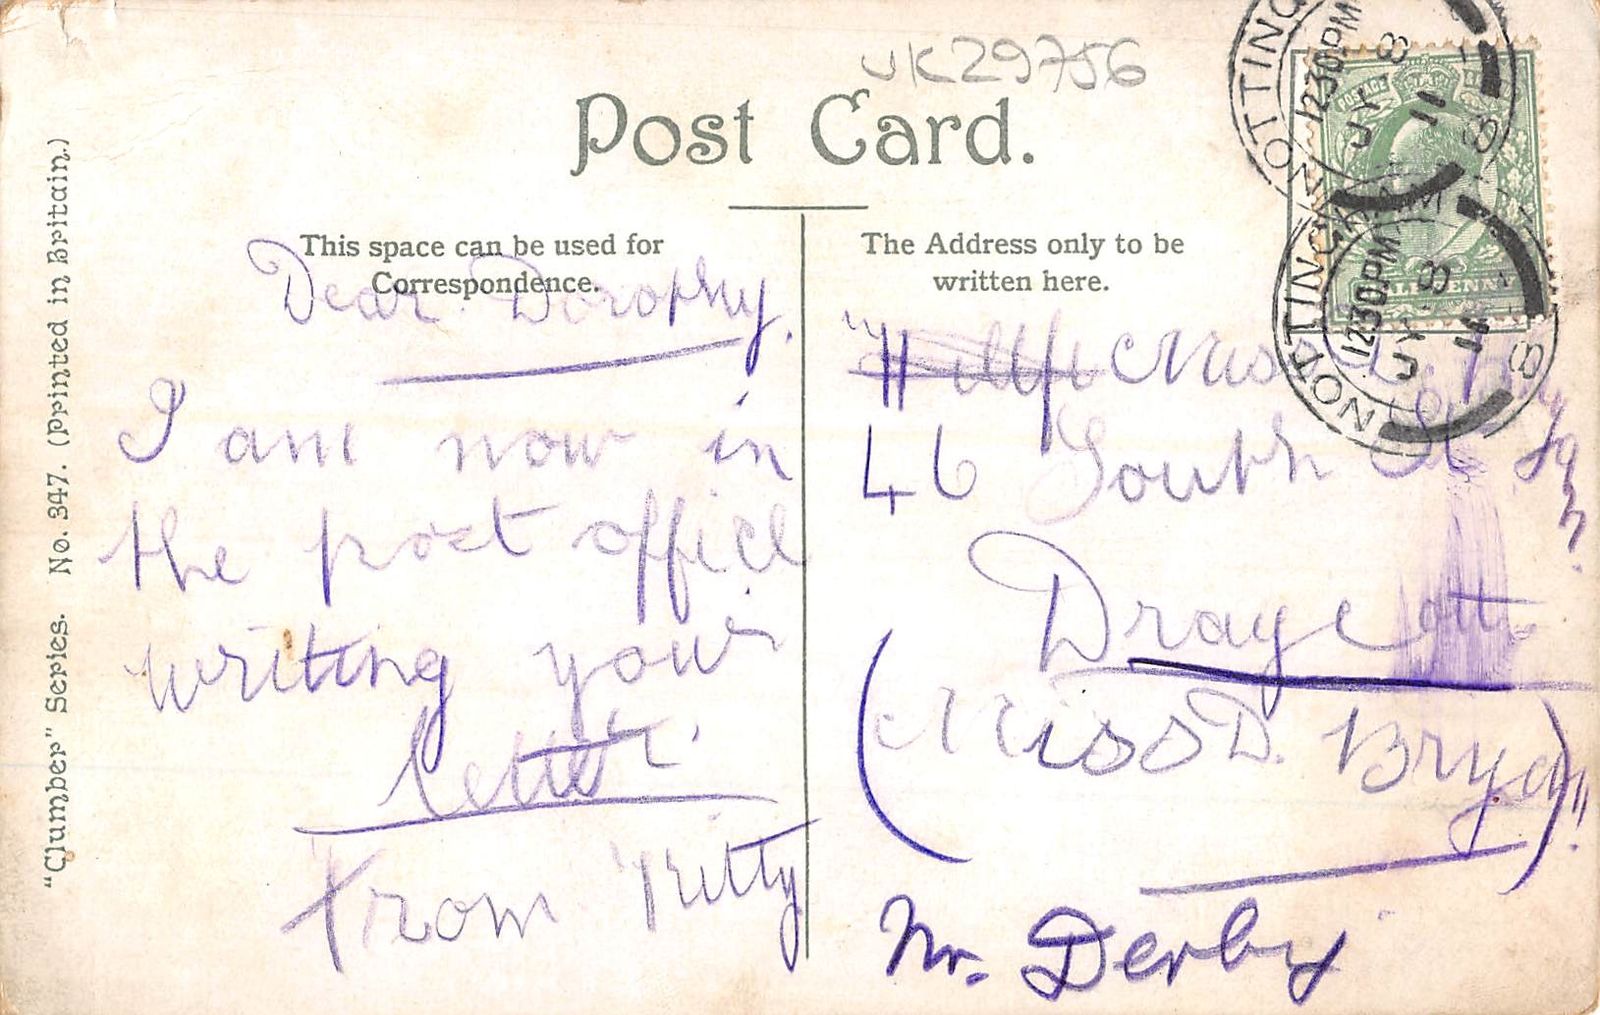 UK29756
Post Card.
This space can be used for
Correspondence.
The Address only to be
written here.
"Clumber" Series. No. 347. (Printed in Britain.)
NOTTING
1230PM
JY 8
11
8
NOTTINGHAM
1230PM
JY 8
11
8
POSTAGE
HALFPENNY
Dear Dorophy.
I am now in
the post office
writing your
letter.
From Kitty
Miss
46 South St
Draycott
(Miss D. Bryan)
Nr. Derby